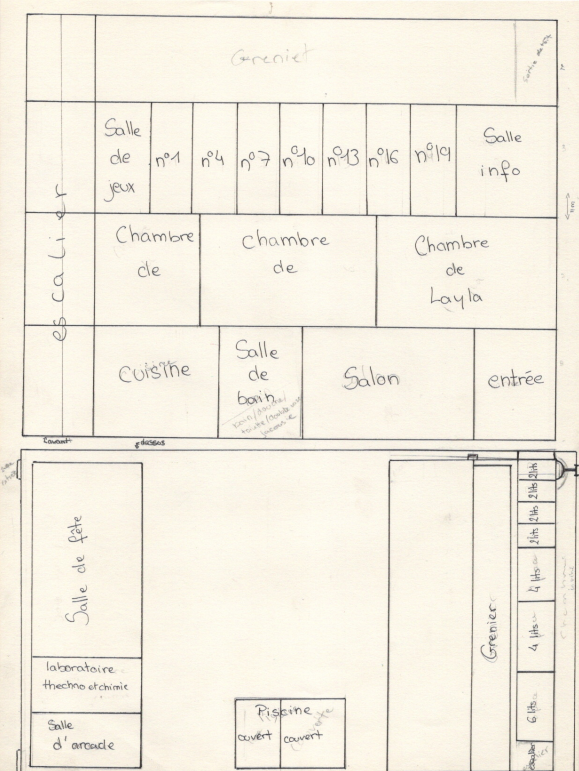 Greniet
Salle
de
jeux
n°1
n°4
n°7
n°10
n°13
n°16
n°19
Salle
info
escalier
Chambre
de
chambre
de
Chambre
de
Layla
cuisine
Salle
de
bain
Salon
entrée
Lavant
dessus
Salle de fête
laboratoire
thechno et chimie
Salle
d'arcade
Piscine
ouvert
couvert
Grenier
2 lits
2 lits
2 lits
2 lits
4 lits
4 lits
6 lits